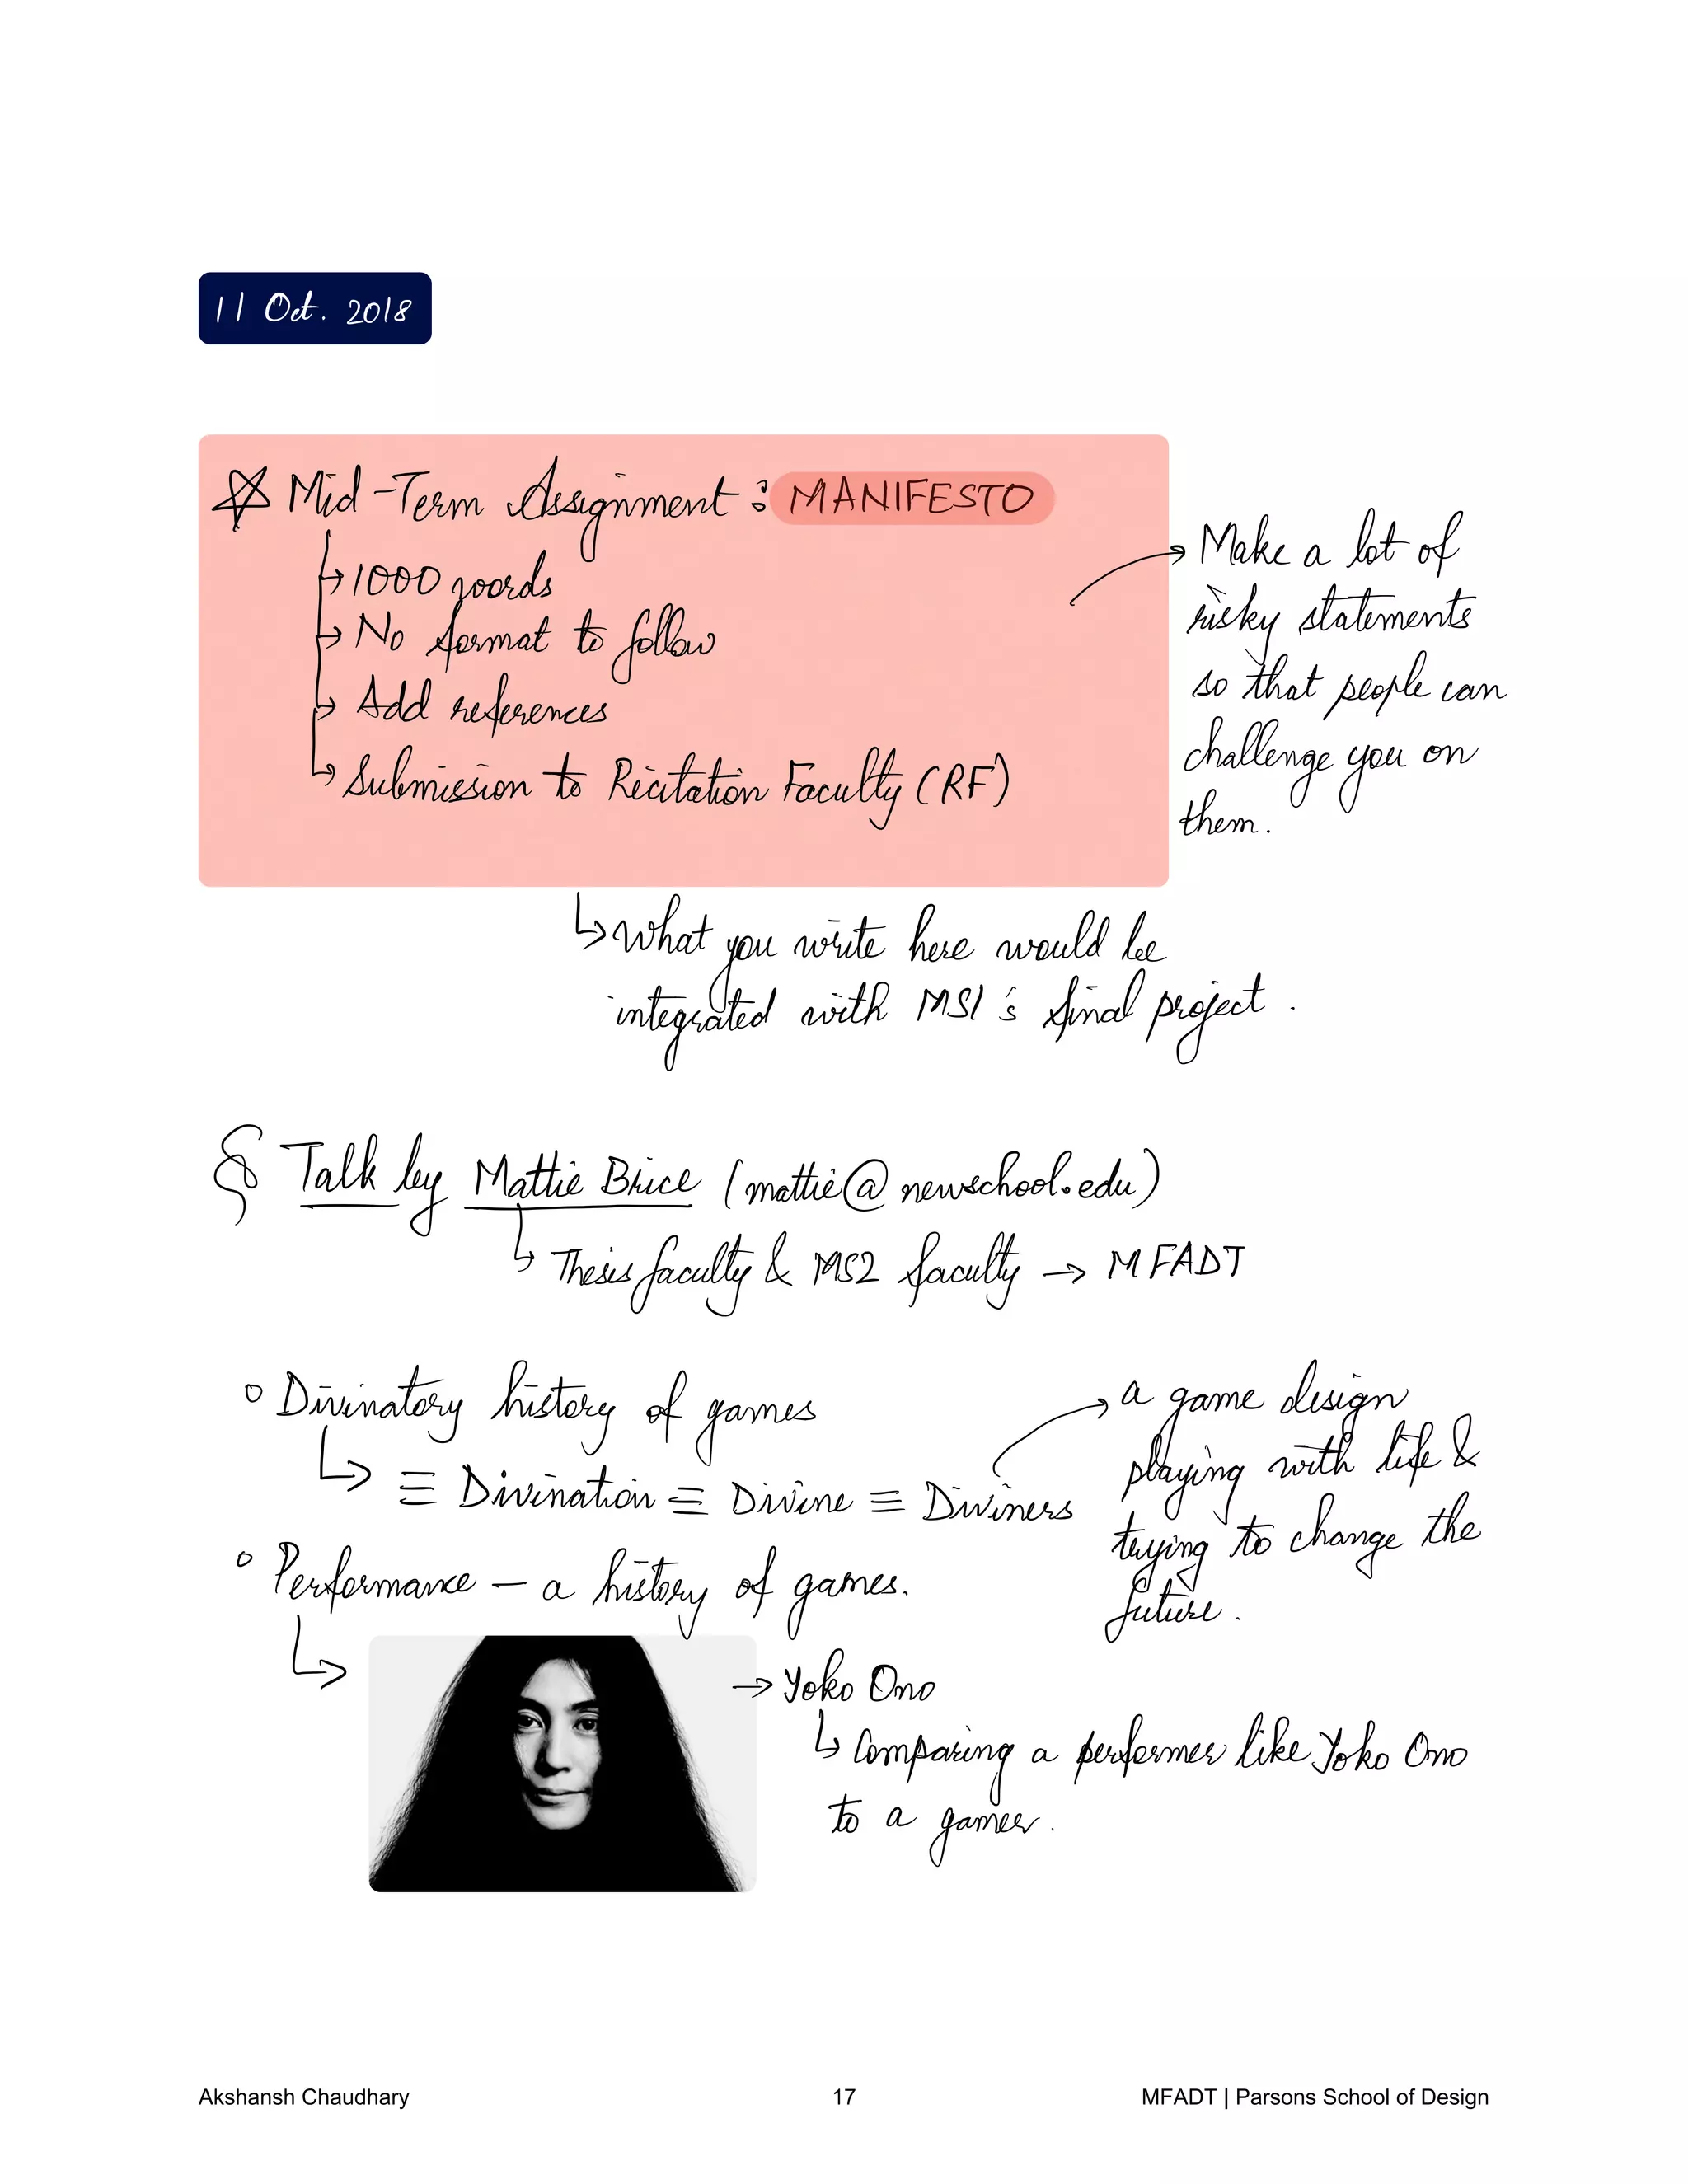 11 Oct. 2018
☆ Mid-Term Assignment : MANIFESTO
↳ 1000 words
↳ No format to follow
↳ Add references
↳ Submission to Recitation Faculty (RF)
→ Make a lot of
risky statements
so that people can
challenge you on
them.
↳ What you write here would be
integrated with MS1's final project.
§ Talk by Mattie Brice (mattie@newschool.edu)
↳ Thesis faculty & MS2 faculty → MFADT
° Divinatory history of games
↳ ≡ Divination ≡ Divine ≡ Diviners
→ a game design
playing with life &
trying to change the
future.
° Performance – a history of games.
↳
→ Yoko Ono
↳ Comparing a performer like Yoko Ono
to a gamer.
Akshansh Chaudhary 17 MFADT | Parsons School of Design